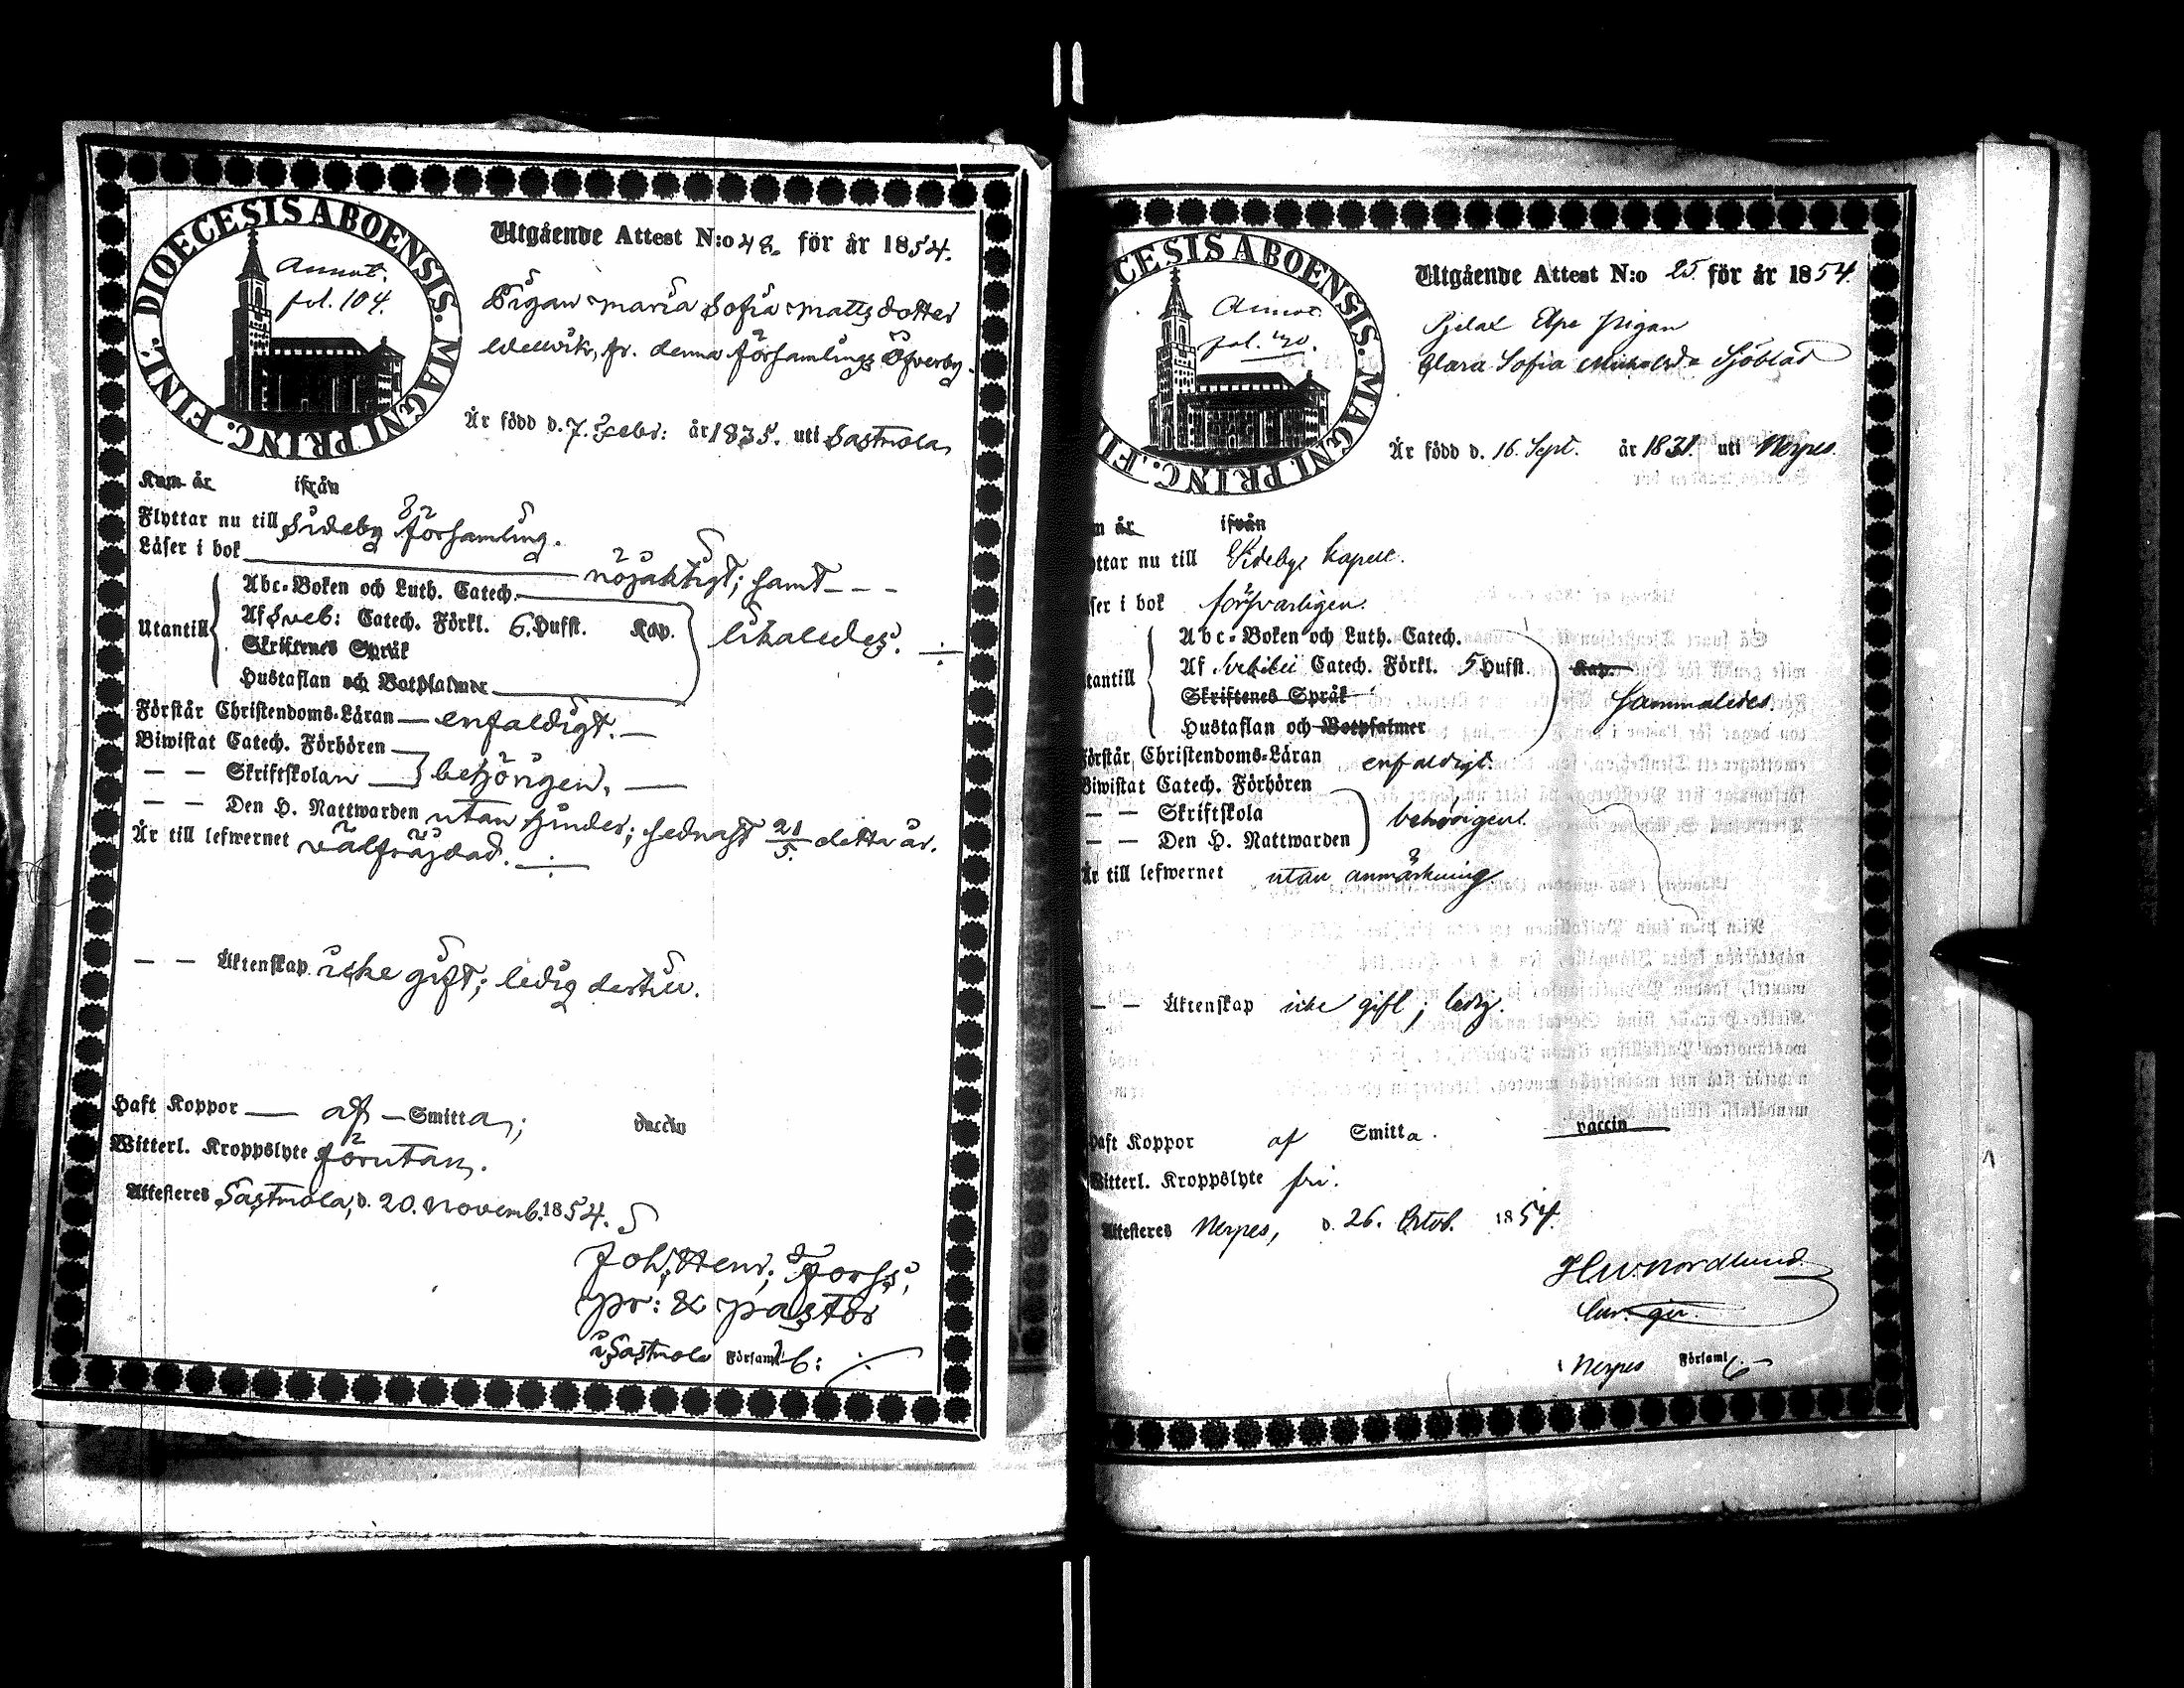 DIOECESIS ABOENSIS. MAGNI PRINC. FINL.
Annot.
fol. 104.
Utgående Attest N:o 48. för år 1854.
Pigan Maria Sofia Mattsdotter
fr. denna församlings Öfverby.
Är född d. 7. Febr: år 1835. uti Sastmola,
Kom år ifrån
Flyttar nu till Sideby församling.
Läser i bok nöjaktigt; samt
Abc-Boken och Luth. Catech.
Utantill Af Sveb: Catech. Förkl. 6. Hufst. Kap. likaledes.
Skriftenes Språk
Hustaflan och Botpsalmer
Förstår Christendoms-Läran enfaldigt.
Biwistat Catech. Förhören
— — Skriftskolan behörigen,
— — Den H. Nattwarden utan hinder; sednast 21/5. detta år.
Är till lefwernet välfräjdad.
— — Äktenskap icke gift; ledig dertill.
Haft Koppor af Smitta; vaccin
Witterl. Kroppslyte förutan.
Attesteres Sastmola, d. 20. Novemb. 1854.
Joh: Henr: Forss,
pr: & pastor
i Sastmola Församl:
CESIS ABOENSIS. MAGNI PRINC. FI
Annot.
fol. 40.
Utgående Attest N:o 25. för år 1854.
Pjelax Pigan
Clara Sofia Sjöblad
Är född d. 16. Sept. år 1831. uti Nerpes.
m år ifrån
ttar nu till Sideby Kapell.
ser i bok försvarligen.
Abc-Boken och Luth. Catech.
tantill Af Svebilii Catech. Förkl. 5 Hufst. Kap.
Skriftenes Språk Sammaledes
Hustaflan och Botpsalmer
Förstår Christendoms-Läran enfaldigt.
Biwistat Catech. Förhören
— — Skriftskola behörigen.
— — Den H. Nattwarden
Är till lefwernet utan anmärkning
— — Äktenskap icke gift; ledig.
Haft Koppor af Smitta. vaccin
Witterl. Kroppslyte fri.
Attesteres Nerpes, d. 26. Octob. 1854.
Nordlund
i Nerpes Förs aml.